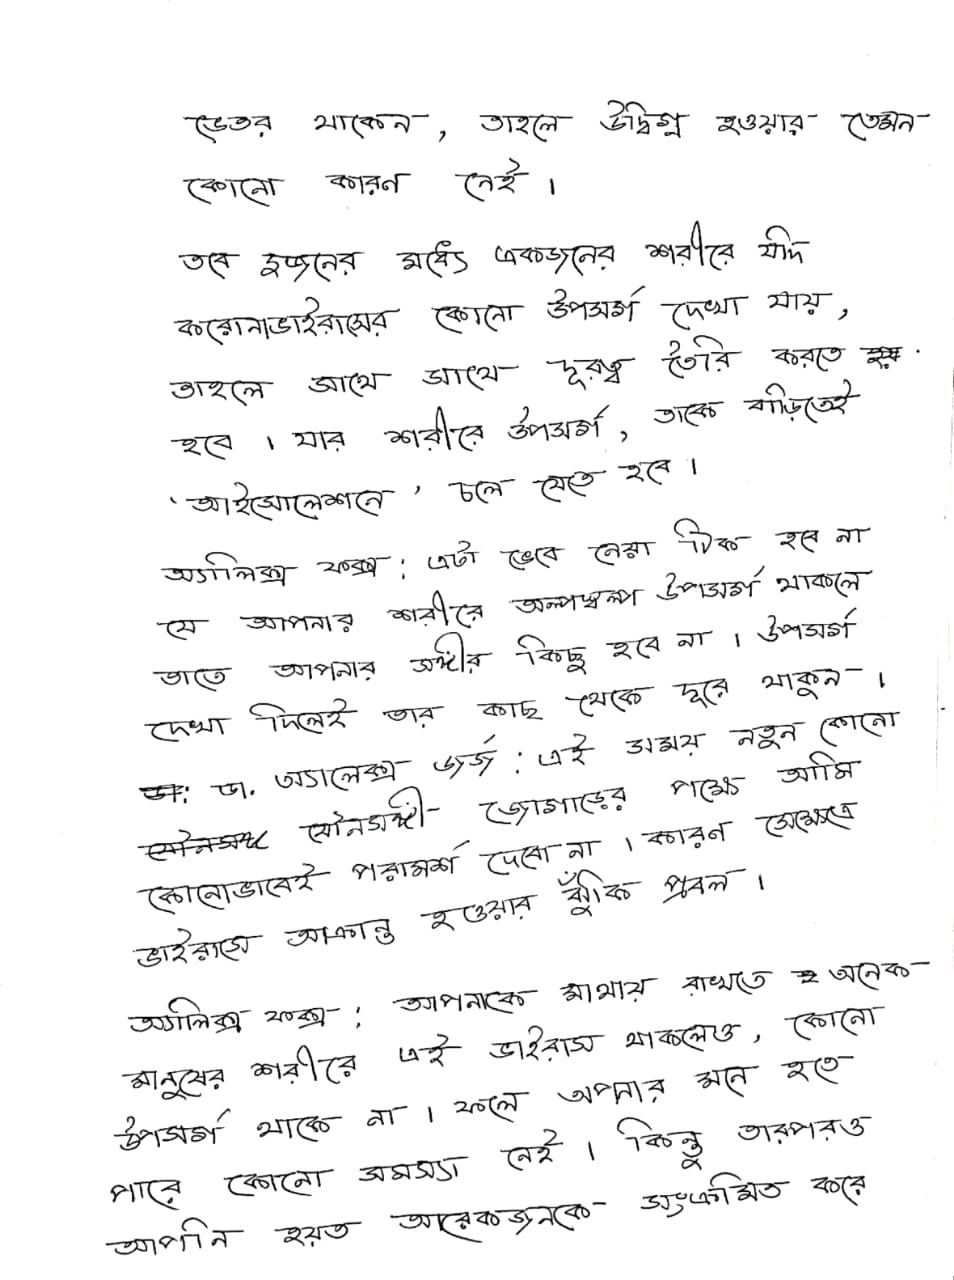 ভেতর থাকেন, তাহলে উদ্বিগ্ন হওয়ার তেমন
কোনো কারণ নেই।
তবে দুজনের মধ্যে একজনের শরীরে যদি
করোনাভাইরাসের কোনো উপসর্গ দেখা যায়,
তাহলে সাথে সাথে দূরত্ব তৈরি করতে
হবে। যার শরীরে উপসর্গ, তাকে বাড়িতেই
'আইসোলেশনে' চলে যেতে হবে।
অ্যালিক্স ফক্স: এটা ভেবে নেয়া ঠিক হবে না
যে আপনার শরীরে অল্পস্বল্প উপসর্গ থাকলে
তাতে আপনার সঙ্গীর কিছু হবে না। উপসর্গ
দেখা দিলেই তার কাছ থেকে দূরে থাকুন।
ডা. অ্যালেক্স জর্জ: এই সময় নতুন কোনো
যৌনসঙ্গী জোগাড়ের পক্ষে আমি
কোনোভাবেই পরামর্শ দেবো না। কারণ সেক্ষেত্রে
ভাইরাসে আক্রান্ত হওয়ার ঝুঁকি প্রবল।
অ্যালিক্স ফক্স: আপনাকে মাথায় রাখতে অনেক
মানুষের শরীরে এই ভাইরাস থাকলেও, কোনো
উপসর্গ থাকে না। ফলে অপনার মনে হতে
পারে কোনো সমস্যা নেই। কিন্তু তারপরও
আপনি হয়ত আরেকজনকে সংক্রমিত করে